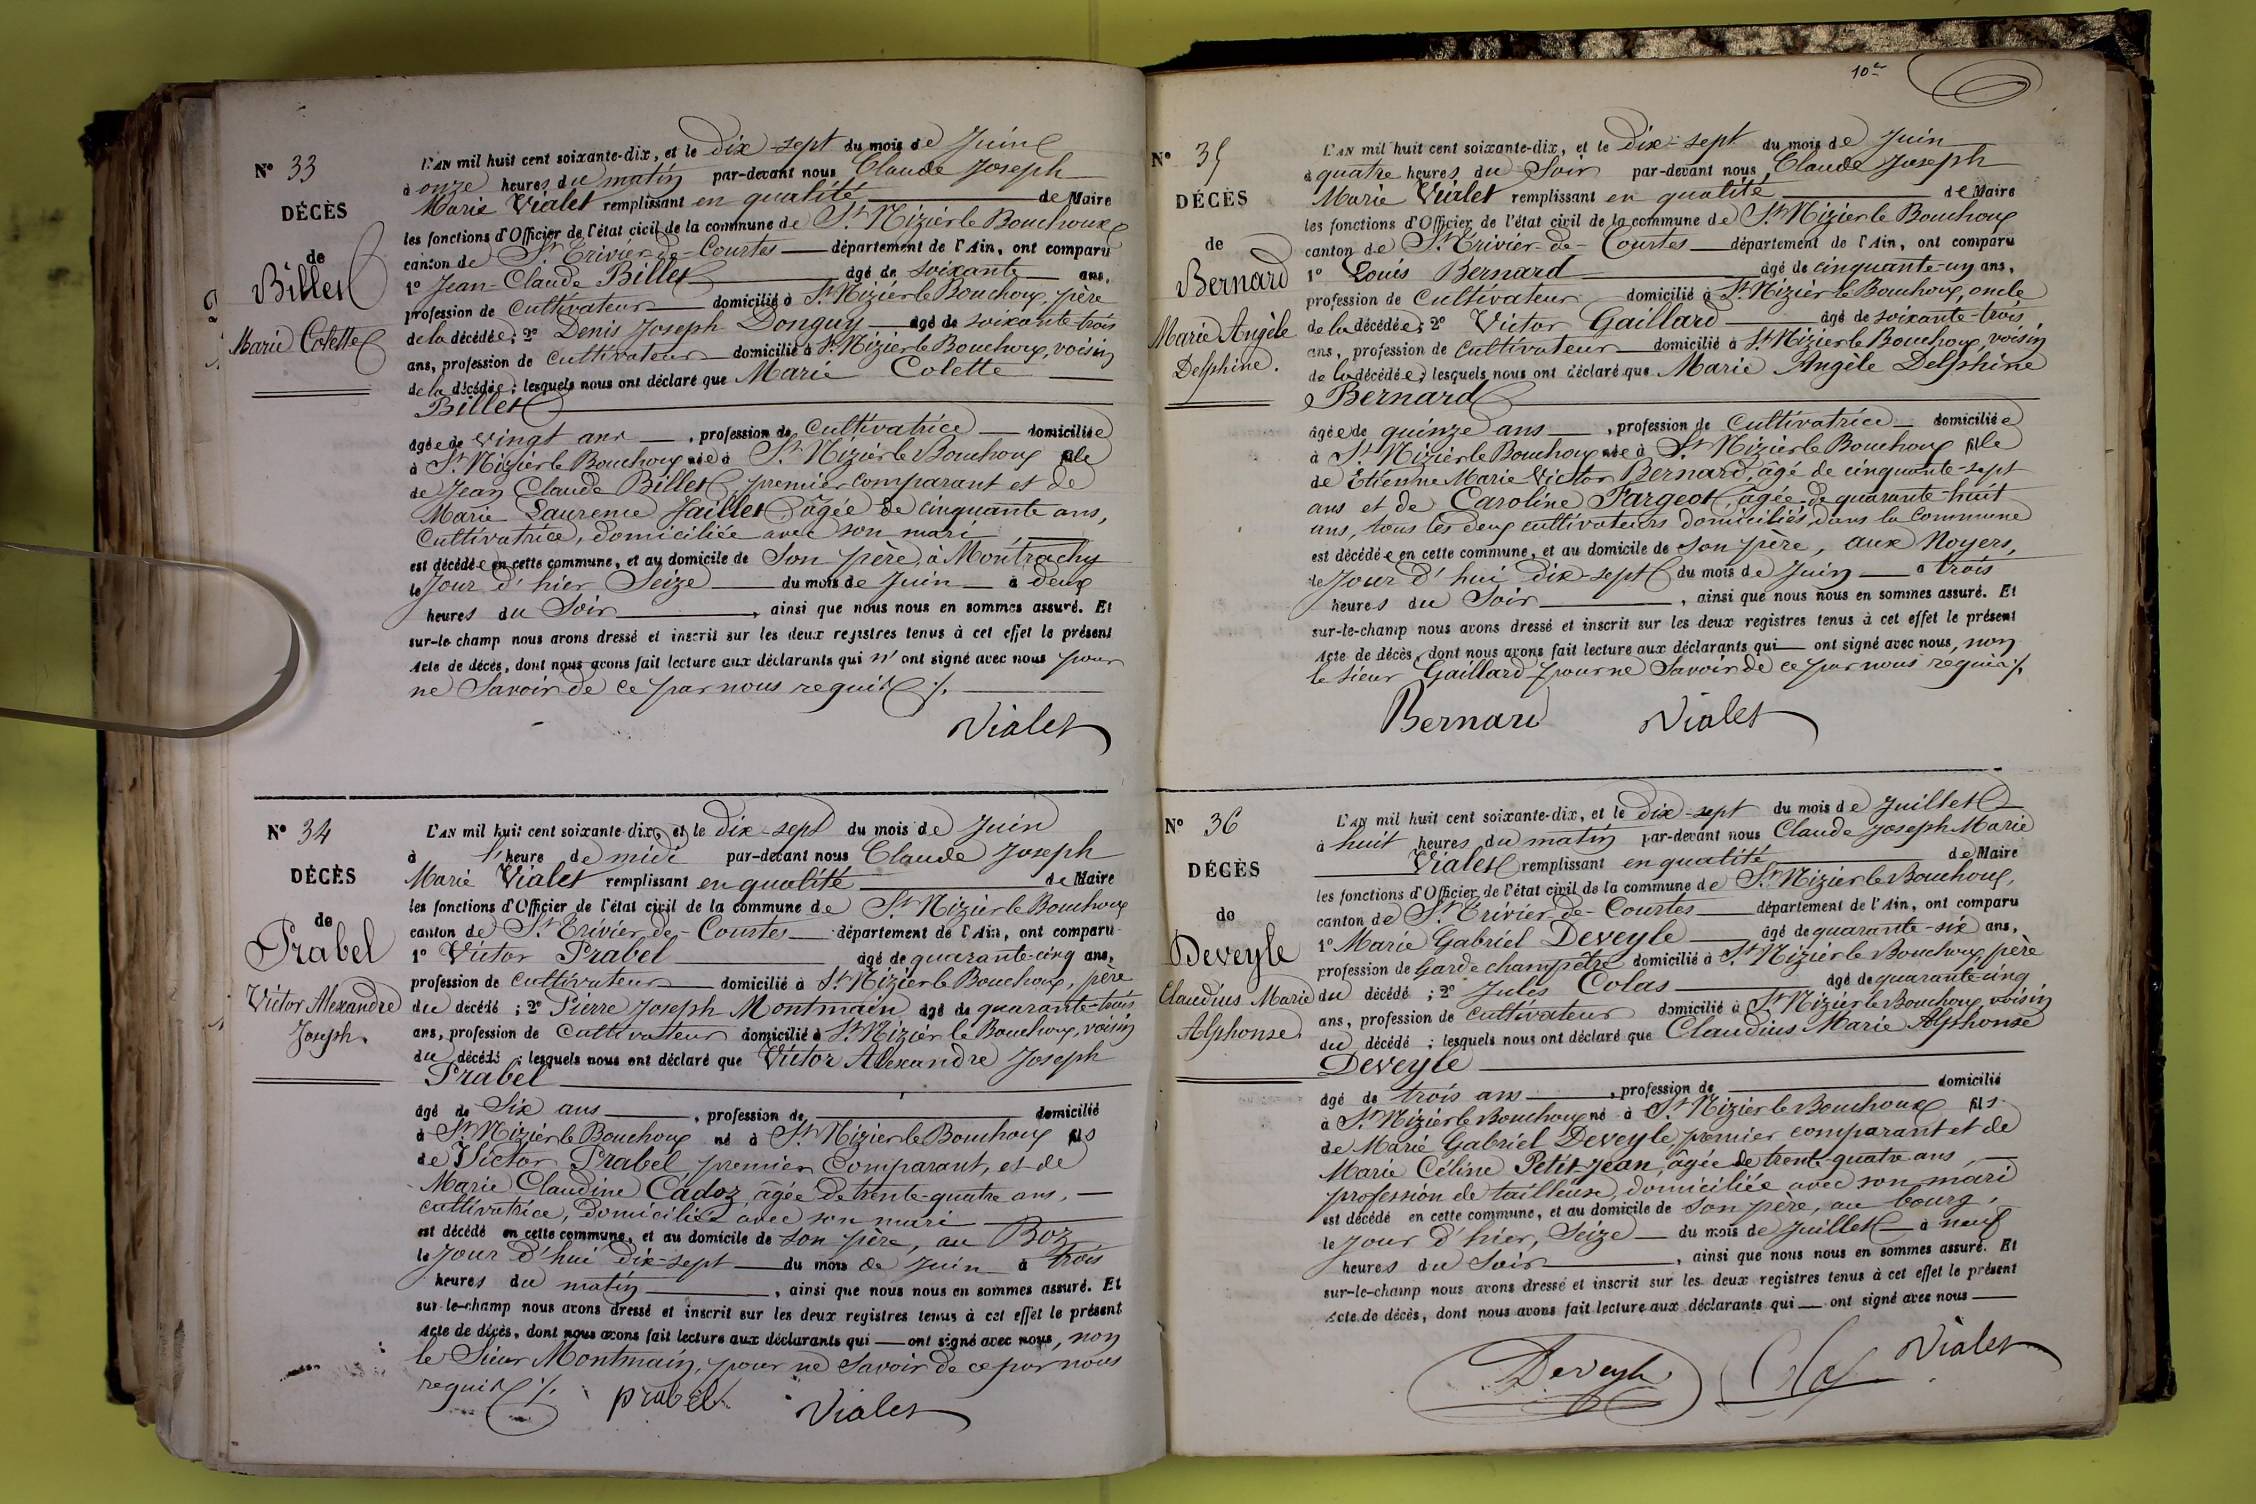 N° 33
DÉCÈS
de
Billet
Marie Colette
L'AN mil huit cent soixante-dix, et le Dix-sept du mois de Juin
à onze heures du matin par-devant nous Claude Joseph
Marie Vialet remplissant en qualité de Maire
les fonctions d'Officier de l'état civil de la commune de St Nizier le Bouchoux
canton de St Trivier-de-Courtes département de l'Ain, ont comparu
1° Jean-Claude Billet âgé de soixante ans,
profession de cultivateur domicilié à St Nizier le Bouchoux, père
de la décédée ; 2° Denis Joseph Donguy âgé de soixante-trois
ans, profession de cultivateur domicilié à St Nizier le Bouchoux, voisin
de la décédée ; lesquels nous ont déclaré que Marie Colette
Billet
âgée de vingt ans, profession de Cultivatrice domiciliée
à St Nizier le Bouchoux née à St Nizier le Bouchoux fille
de Jean Claude Billet, premier comparant et de
Marie Laurence Jaillet, âgée de cinquante ans,
cultivatrice, domiciliée avec son mari
est décédée en cette commune, et au domicile de Son père, à Montrachy
le Jour d'hier Seize du mois de Juin à deux
heures du Soir, ainsi que nous nous en sommes assuré. Et
sur-le-champ nous avons dressé et inscrit sur les deux registres tenus à cet effet le présent
Acte de décès, dont nous avons fait lecture aux déclarants qui n'ont signé avec nous pour
ne Savoir de ce par nous requis ./.
Vialet
N° 34
DÉCÈS
de
Prabel
Victor Alexandre
Joseph.
L'AN mil huit cent soixante-dix, et le dix-sept du mois de Juin
à l'heure de midi par-devant nous Claude Joseph
Marie Vialet remplissant en qualité de Maire
les fonctions d'Officier de l'état civil de la commune de St Nizier le Bouchoux
canton de St Trivier-de-Courtes département de l'Ain, ont comparu
1° Victor Prabel âgé de quarante-cinq ans,
profession de cultivateur domicilié à St Nizier le Bouchoux, père
du décédé ; 2° Pierre Joseph Montmain âgé de quarante-
ans, profession de Cultivateur domicilié à St Nizier le Bouchoux, voisin
du décédé ; lesquels nous ont déclaré que Victor Alexandre Joseph
Prabel
âgé de Six ans, profession de domicilié
à St Nizier le Bouchoux né à St Nizier le Bouchoux fils
de Victor Prabel, premier Comparant, et de
Marie Claudine Cadoz, âgée de trente-quatre ans,
cultivatrice, domiciliée avec son mari
est décédé en cette commune, et au domicile de son père, au Boz
le Jour d'hui dix-sept du mois de Juin à trois
heures du matin, ainsi que nous nous en sommes assuré. Et
sur-le-champ nous avons dressé et inscrit sur les deux registres tenus à cet effet le présent
Acte de décès, dont nous avons fait lecture aux déclarants qui ont signé avec nous, non
le Sieur Montmain, pour ne Savoir de ce par nous
requis ./. prabel Vialet
10e
N° 35
DÉCÈS
de
Bernard
Marie Angèle
Delphine.
L'AN mil huit cent soixante-dix, et le Dix-sept du mois de Juin
à quatre heures du Soir par-devant nous, Claude Joseph
Marie Vialet remplissant en qualité de Maire
les fonctions d'Officier de l'état civil de la commune de St Nizier le Bouchoux
canton de St Trivier-de-Courtes département de l'Ain, ont comparu
1° Louis Bernard âgé de cinquante-un ans,
profession de cultivateur domicilié à St Nizier le Bouchoux, oncle
de la décédée ; 2° Victor Gaillard âgé de soixante-trois
ans, profession de cultivateur domicilié à St Nizier le Bouchoux, voisin
de la décédée ; lesquels nous ont déclaré que Marie Angèle Delphine
Bernard
âgée de quinze ans, profession de Cultivatrice domiciliée
à St Nizier le Bouchoux née à St Nizier le Bouchoux fille
de Etienne Marie Victor Bernard, âgé de cinquante-sept
ans et de Caroline Fargeot, âgée de quarante-huit
ans, tous les deux cultivateurs domiciliés dans la commune
est décédée en cette commune, et au domicile de son père, aux Noyers,
le Jour d'hui dix-sept du mois de Juin à trois
heures du Soir, ainsi que nous nous en sommes assuré. Et
sur-le-champ nous avons dressé et inscrit sur les deux registres tenus à cet effet le présent
Acte de décès, dont nous avons fait lecture aux déclarants qui ont signé avec nous, non
le Sieur Gaillard pour ne Savoir de ce par nous requis ./.
Bernard Vialet
N° 36
DÉCÈS
de
Deveyle
Claudius Marie
Alphonse.
L'AN mil huit cent soixante-dix, et le Dix-sept du mois de Juillet
à huit heures du matin par-devant nous Claude Joseph Marie
Vialet remplissant en qualité de Maire
les fonctions d'Officier de l'état civil de la commune de St Nizier le Bouchoux,
canton de St Trivier-de-Courtes département de l'Ain, ont comparu
1° Marie Gabriel Deveyle âgé de quarante-six ans,
profession de Garde champêtre domicilié à St Nizier le Bouchoux, père
du décédé ; 2° Jules Colas âgé de quarante-cinq
ans, profession de cultivateur domicilié à St Nizier le Bouchoux, voisin
du décédé ; lesquels nous ont déclaré que Claudius Marie Alphonse
Deveyle
âgé de trois ans, profession de domicilié
à St Nizier le Bouchoux né à St Nizier le Bouchoux fils
de Marie Gabriel Deveyle, premier comparant et de
Marie Céline Petit-Jean, âgée de trente-quatre ans,
profession de tailleuse, domiciliée avec son mari
est décédé en cette commune, et au domicile de son père, au bourg,
le jour d'hier, Seize du mois de Juillet à neuf
heures du Soir, ainsi que nous nous en sommes assuré. Et
sur-le-champ nous avons dressé et inscrit sur les deux registres tenus à cet effet le présent
Acte de décès, dont nous avons fait lecture aux déclarants qui ont signé avec nous
Deveyle Vialet